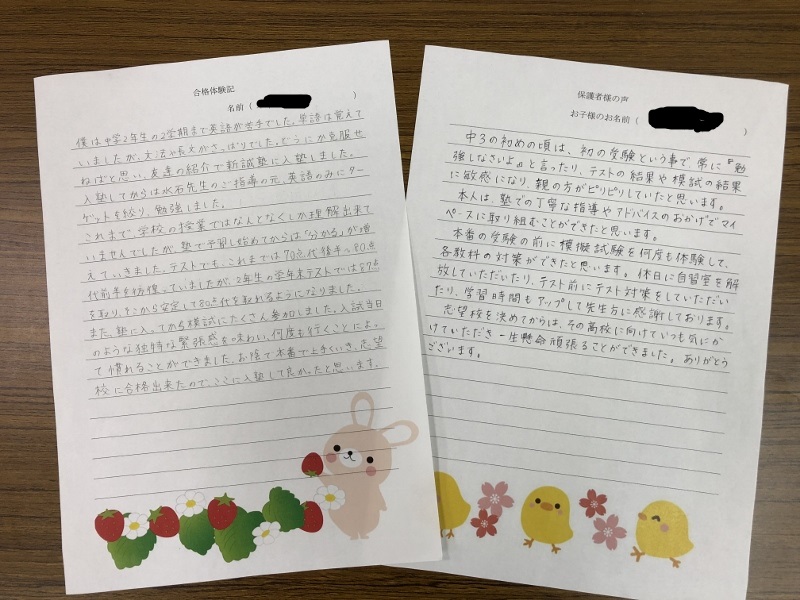 合格体験記
名前（　　　　）
僕は中学2年生の2学期まで英語が苦手でした。単語は覚えて
いましたが、文法や長文がさっぱりでした。どうにか克服せ
ねばと思い、友達の紹介で新誠塾に入塾しました。
入塾してからは水石先生のご指導の元、英語のみにター
ゲットを絞り、勉強しました。
これまで、学校の授業ではなんとなくしか理解出来て
いませんでしたが、塾で予習し始めてからは「分かる」が増
えていきました。テストでも、これまでは70点代後半〜80点
代前半を彷徨っていましたが、2年生の学年末テストでは87点
を取り、そこから安定して80点代を取れるようになりました。
また、塾に入ってから模試にたくさん参加しました。入試当日
のような独特な緊張感を味わい、何度も行くことによっ
て慣れることができました。お陰で本番で上手くいき、志望
校に合格出来たので、ここに入塾して良かったと思います。
保護者様の声
お子様のお名前（　　　　）
中3の初めの頃は、初の受験という事で、常に『勉
強しなさいよ』と言ったり、テストの結果や模試の結果
に敏感になり、親の方がピリピリしていたと思います。
本人は、塾での丁寧な指導やアドバイスのおかげでマイ
ペースに取り組むことができたと思います。
本番の受験の前に模擬試験を何度も体験して、
各教科の対策ができたと思います。休日に自習室を解
放していただいたり、テスト前にテスト対策をしていただい
たり、学習時間もアップして先生方に感謝しております。
志望校を決めてからは、その高校に向けていつも気にか
けていただき一生懸命頑張ることができました。ありがとう
ございます。